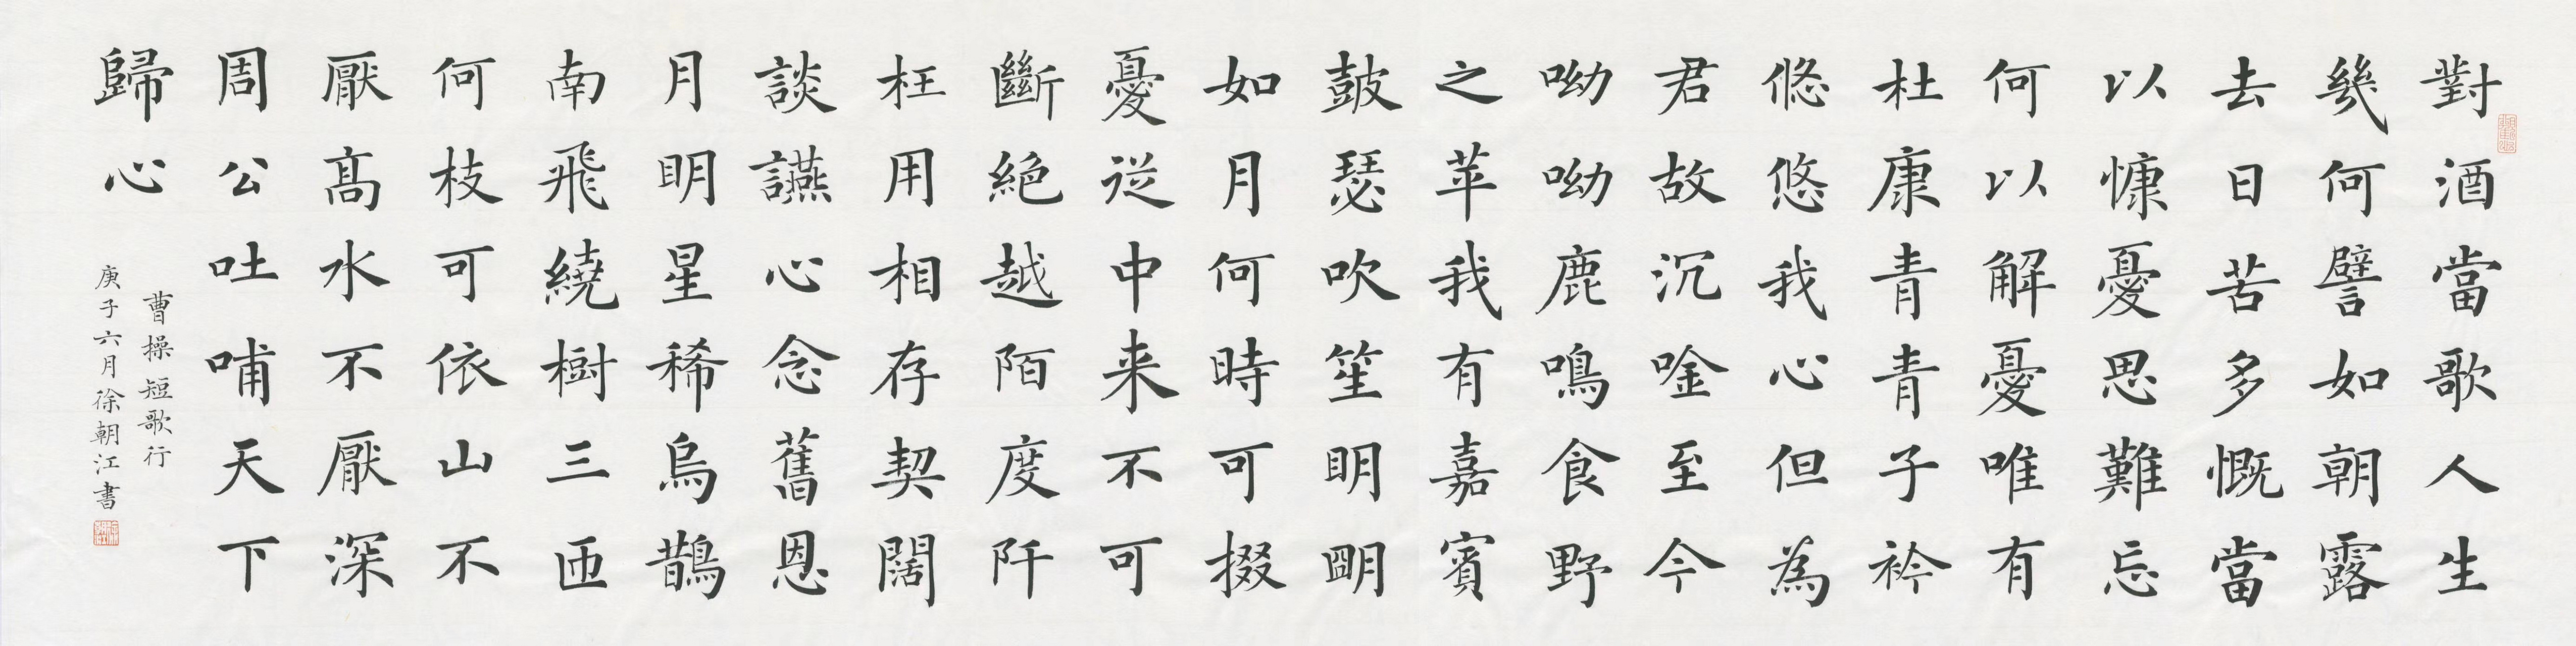 對酒當歌人生
幾何譬如朝露
去日苦多慨當
以慷憂思難忘
何以解憂唯有
杜康青青子衿
悠悠我心但為
君故沉唫至今
呦呦鹿鳴食野
之苹我有嘉賓
皷瑟吹笙眀朙
如月何時可掇
憂従中来不可
斷絶越陌度阡
枉用相存契闊
談讌心念舊恩
月眀星稀烏鵲
南飛繞樹三匝
何枝可依山不
厭髙水不厭深
周公吐哺天下
歸心
曹操短歌行
庚子六月徐朝江書